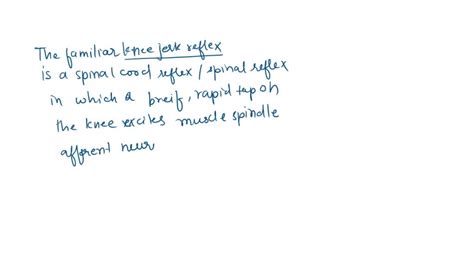 The familiar knee jerk reflex
is a spinal cood reflex / spinal reflex
in which a breif, rapid tap on
the knee excites muscle spindle
afferent neur